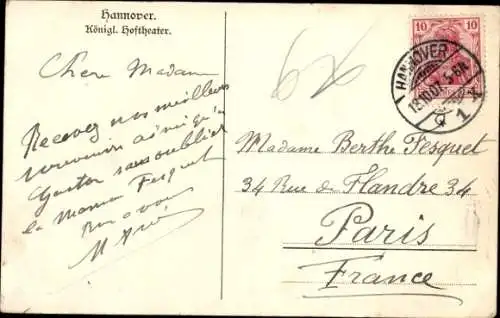 Hannover.
Königl. Hoftheater.
Chère Madame
Recevez nos meilleurs
souvenirs
Gaston sans oublier
la Maman Fesquet
10
HANNOVER
1
Madame Berthe Fesquet
34 Rue de Flandre 34
Paris
France